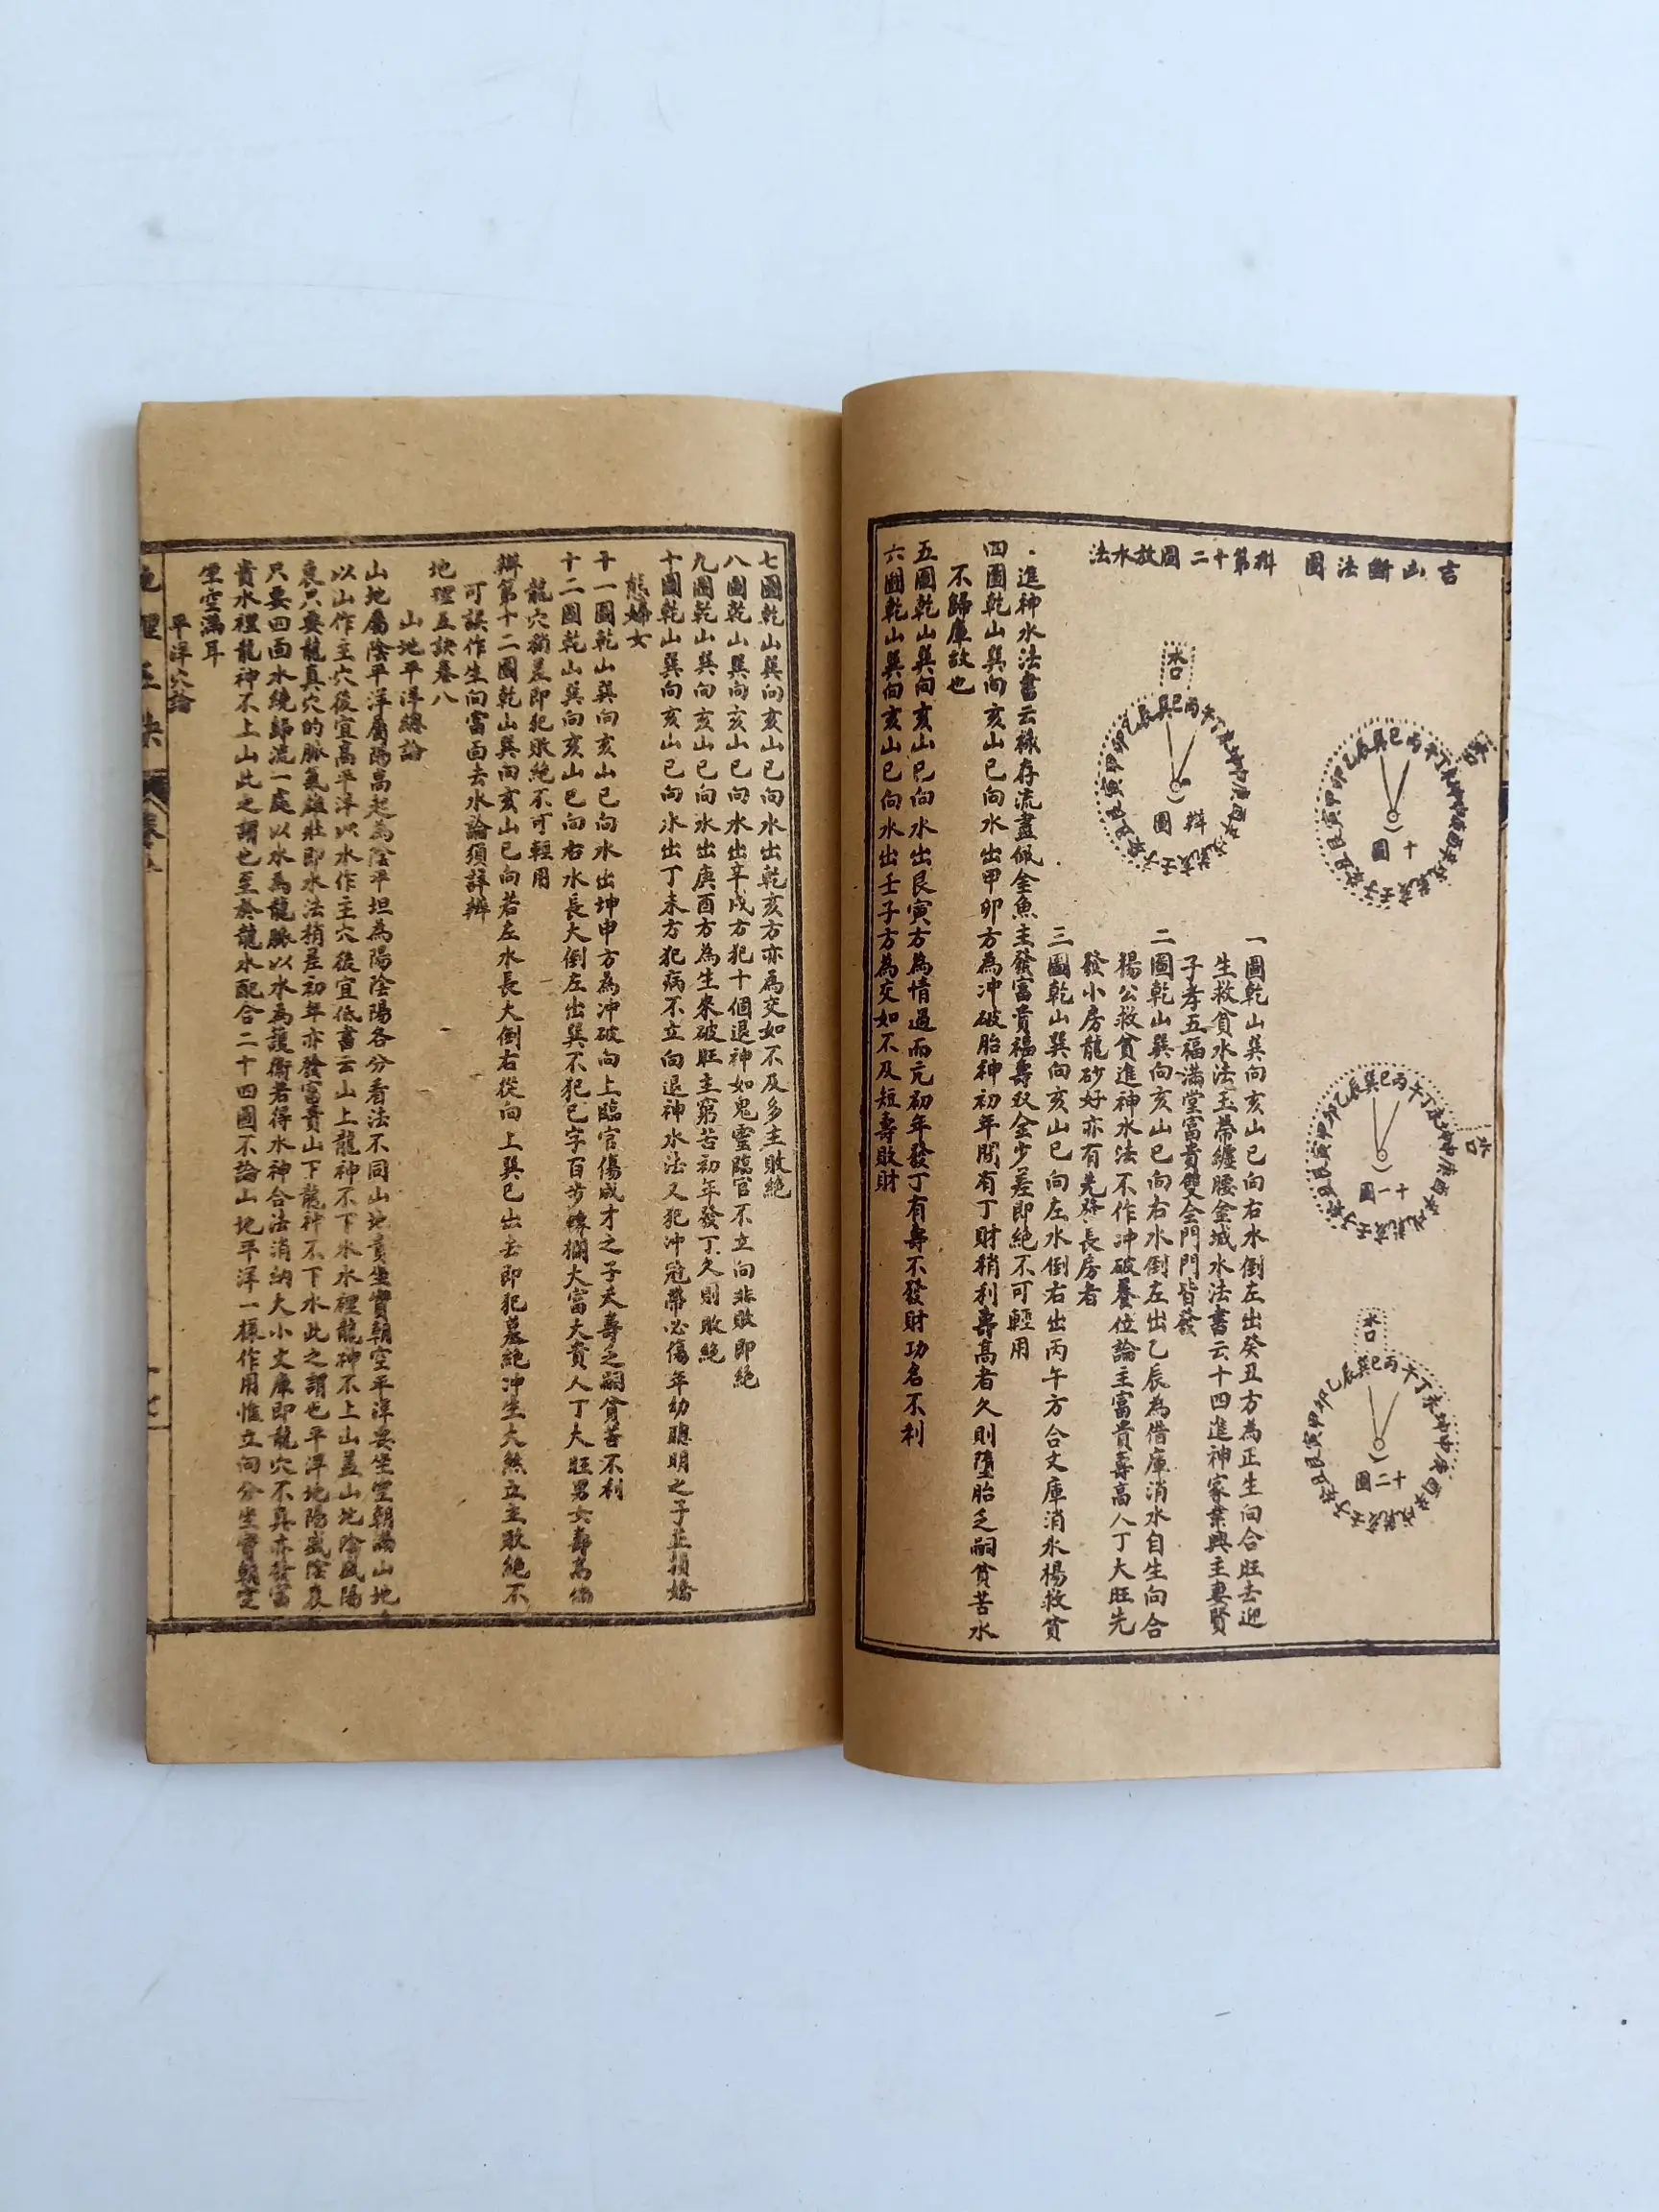 吉山斷法圖
辯第十二圖放水法
水口
巽巳丙午丁
十圖
十一圖
水口
十二圖
水口
辯圖
一圖乾山巽向亥山巳向右水倒左出癸丑方為正生向合旺去迎
生救貧水法玉帶纏腰金城水法書云十四進神家業興主妻賢
子孝五福滿堂富貴雙全門門皆發
二圖乾山巽向亥山巳向右水倒左出乙辰為借庫消水自生向合
楊公救貧進神水法不作冲破養位論主富貴壽高人丁大旺先
發小房龍砂好亦有先發長房者
三圖乾山巽向亥山巳向左水倒右出丙午方合文庫消水楊救貧
進神水法書云祿存流盡佩金魚主發富貴福壽双全少差即絕不可輕用
四圖乾山巽向亥山巳向水出甲卯方為冲破胎神初年間有丁財稍利壽高者久則墮胎乏嗣貧苦水
不歸庫故也
五圖乾山巽向亥山巳向水出艮寅方為情過而亢初年發丁有壽不發財功名不利
六圖乾山巽向亥山巳向水出壬子方為交如不及短壽敗財
七圖乾山巽向亥山巳向水出乾亥方亦為交如不及多主敗絕
八圖乾山巽向亥山巳向水出辛戌方犯十個退神如鬼靈臨官不立向非敗即絕
九圖乾山巽向亥山巳向水出庚酉方為生來破旺主窮苦初年發丁久則敗絕
十圖乾山巽向亥山巳向水出丁未方犯病不立向退神水法又犯冲冠帶必傷年幼聰明之子並損嬌
態婦女
十一圖乾山巽向亥山巳向水出坤申方為冲破向上臨官傷成才之子夭壽乏嗣貧苦不利
十二圖乾山巽向亥山巳向右水長大倒左出巽不犯巳字百步轉欄大富大貴人丁大旺男女壽高倘
龍穴稍差即犯敗絕不可輕用
辯第十二圖乾山巽向亥山巳向若左水長大倒右從向上巽巳出去即犯墓絕冲生大煞立主敗絕不
可誤作生向當面去水論須詳辯
地理五訣卷八
山地平洋總論
山地屬陰平洋屬陽高起為陰平坦為陽陰陽各分看法不同山地貴坐實朝空平洋要坐空朝滿山地
以山作主穴後宜高平洋以水作主穴後宜低書云山上龍神不下水水裡龍神不上山蓋山地陰盛陽
衰只要龍真穴的脈氣雄壯即水法稍差初年亦發富貴山下龍神不下水此之謂也平洋地陽盛陰衰
只要四面水繞歸流一處以水為龍脈以水為護衞若得水神合法消納大小文庫即龍穴不真亦發富
貴水裡龍神不上山此之謂也至於龍水配合二十四圖不論山地平洋一樣作用惟立向分坐實朝空
坐空滿耳
平洋穴論
地理五訣